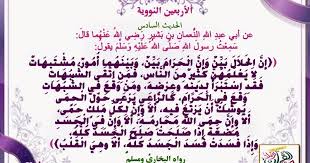 الأربعين النووية
الحديث السادس
عن أبي عبد الله النُّعمان بن بشير رَضِيَ اللهُ عَنْهُما قَالَ:
سَمِعْتُ رسول اللهِ صَلَّى اللهُ عَلَيْهِ وَسَلَّمَ يقول:
((إِنَّ الْحَلَالَ بَيِّنٌ وَإِنَّ الْحَرَامَ بَيِّنٌ، وَبَيْنَهُمَا أُمُورٌ مُشْتَبِهَاتٌ
لَا يَعْلَمُهُنَّ كَثِيرٌ مِنَ النَّاسِ، فَمَنِ اتَّقَى الشُّبُهَاتِ
فَقَدِ اسْتَبْرَأَ لِدِينِهِ وَعِرْضِهِ، وَمَنْ وَقَعَ فِي الشُّبُهَاتِ
وَقَعَ فِي الْحَرَامِ، كَالرَّاعِي يَرْعَى حَوْلَ الْحِمَى
يُوشِكُ أَنْ يَرْتَعَ فِيهِ، أَلَا وَإِنَّ لِكُلِّ مَلِكٍ حِمًى،
أَلَا وَإِنَّ حِمَى اللهِ مَحَارِمُهُ، أَلَا وَإِنَّ فِي الْجَسَدِ
مُضْغَةً إِذَا صَلَحَتْ صَلَحَ الْجَسَدُ كُلُّهُ،
وَإِذَا فَسَدَتْ فَسَدَ الْجَسَدُ كُلُّهُ، أَلَا وَهِيَ الْقَلْبُ))
رواه البخاري ومسلم